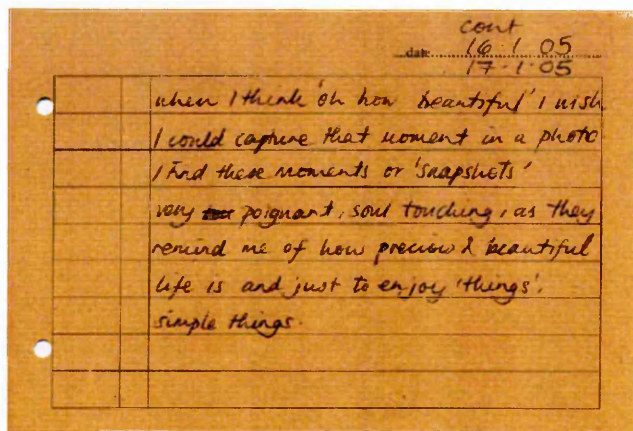 cont
date 16.1.05
17.1.05
when I think 'oh how beautiful' I wish
I could capture that moment in a photo
I find these moments or 'snapshots'
very poignant, soul touching, as they
remind me of how precious & beautiful
life is and just to enjoy 'things'.
simple things.